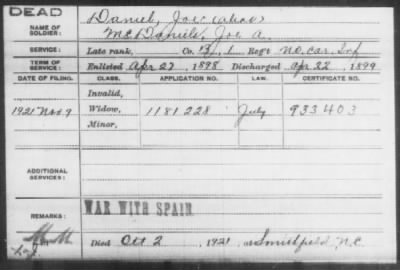 DEAD
NAME OF SOLDIER: Daniel, Joe (alias)
McDaniels, Joe A.
SERVICE: Late rank, Co. B, 1 Reg't No. Car. Inf
TERM OF SERVICE: Enlisted Apr 27 1898 Discharged Apr 22, 1899
DATE OF FILING. CLASS. APPLICATION NO. LAW. CERTIFICATE NO.
Invalid,
1921 Nov 9 Widow, 1181228 July 933403
Minor,
ADDITIONAL SERVICES:
WAR WITH SPAIN
REMARKS:
Died Oct 2, 1921, at Smithfield, N.C.